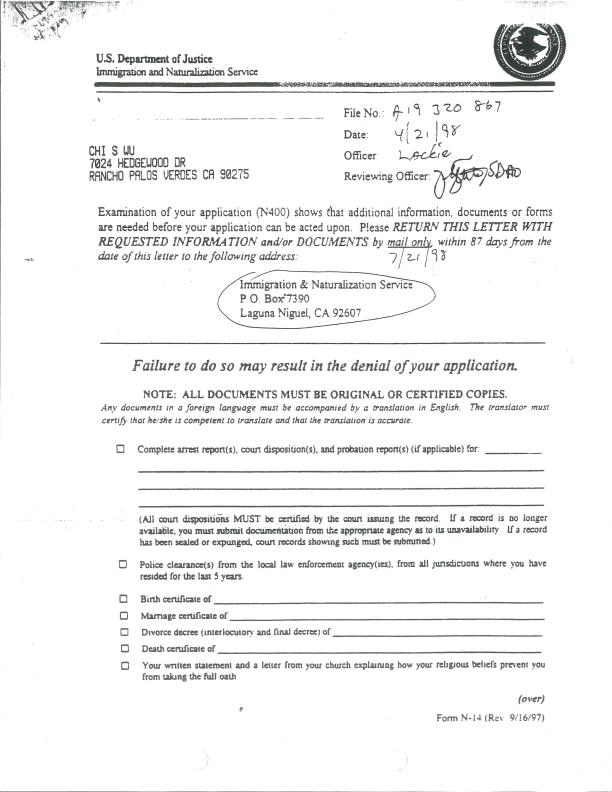 U.S. Department of Justice
Immigration and Naturalization Service
File No.: A19 320 867
Date: 4/21/98
Officer: Lockie
Reviewing Officer: SDAO
CHI S WU
7024 HEDGEWOOD DR
RANCHO PALOS VERDES CA 90275
Examination of your application (N400) shows that additional information, documents or forms
are needed before your application can be acted upon. Please RETURN THIS LETTER WITH
REQUESTED INFORMATION and/or DOCUMENTS by mail only, within 87 days from the
date of this letter to the following address:
7/21/98
Immigration & Naturalization Service
P O. Box 7390
Laguna Niguel, CA 92607
Failure to do so may result in the denial of your application.
NOTE: ALL DOCUMENTS MUST BE ORIGINAL OR CERTIFIED COPIES.
Any documents in a foreign language must be accompanied by a translation in English. The translator must
certify that he/she is competent to translate and that the translation is accurate.
Complete arrest report(s), court disposition(s), and probation report(s) (if applicable) for:
(All court dispositions MUST be certified by the court issuing the record. If a record is no longer
available, you must submit documentation from the appropriate agency as to its unavailability. If a record
has been sealed or expunged, court records showing such must be submitted.)
Police clearance(s) from the local law enforcement agency(ies), from all jurisdictions where you have
resided for the last 5 years.
Birth certificate of
Marriage certificate of
Divorce decree (interlocutory and final decree) of
Death certificate of
Your written statement and a letter from your church explaining how your religious beliefs prevent you
from taking the full oath
(over)
Form N-14 (Rev 9/16/97)